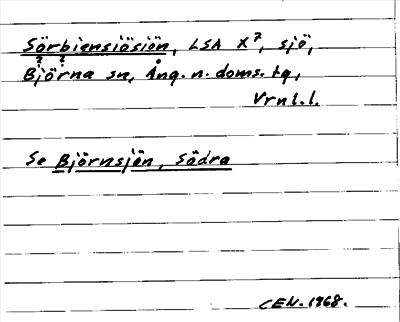 Sörbiensiösiön, LSA X7, sjö,
? ?
Björna sn, Ång. n. doms. tg,
Vrnl.l.
Se Björnsjön, Södra
CEN. 1968.